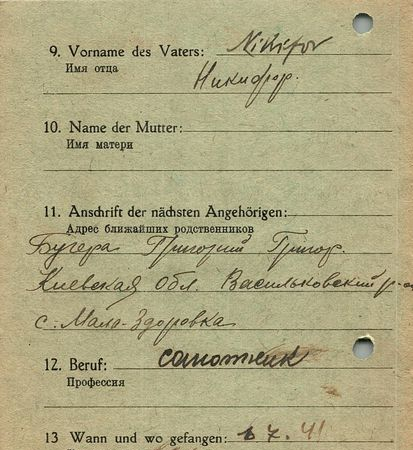 9. Vorname des Vaters: Nikifor
Имя отца
Никифор.
10. Name der Mutter:
Имя матери
11. Anschrift der nächsten Angehörigen:
Адрес ближайших родственников
Бугера Григорий Григор.
Киевская Обл. Васильковский р-он
с. Мало-Здоровка
12. Beruf: сапожник
Профессия
13 Wann und wo gefangen: 7. 41